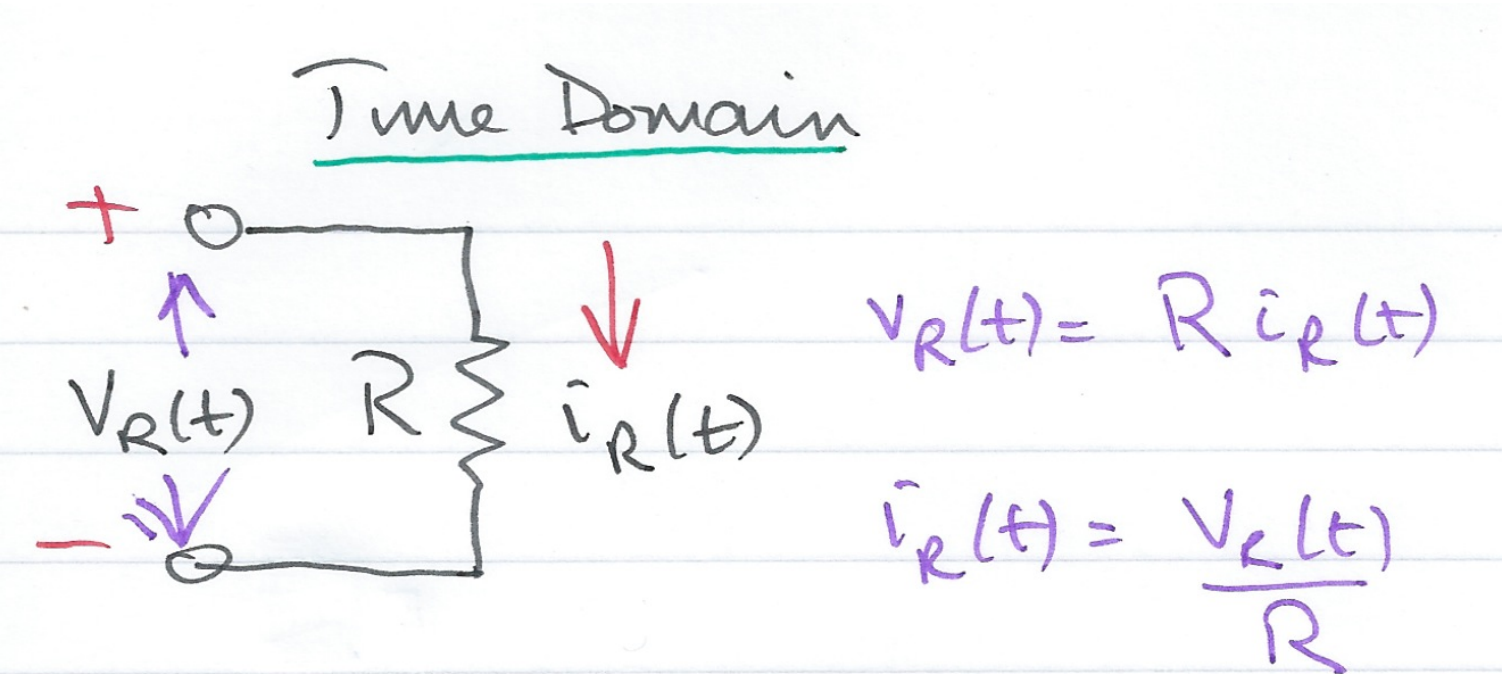 Time Domain
+
V_R(t) R i_R(t)
−
v_R(t) = R i_R(t)
i_R(t) = V_R(t)/R